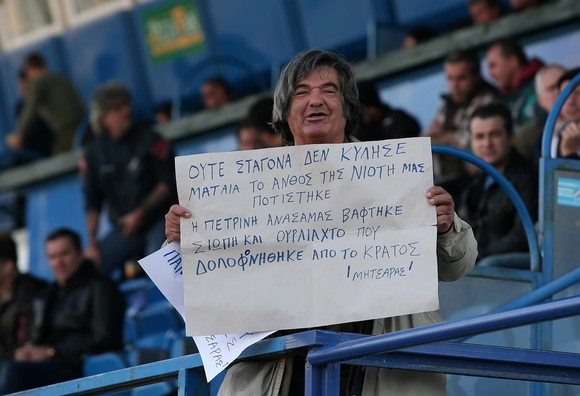 ΟΥΤΕ ΣΤΑΓΟΝΑ ΔΕΝ ΚΥΛΗΣΕ
ΜΑΤΑΙΑ ΤΟ ΑΝΘΟΣ ΤΗΣ ΝΙΟΤΗ ΜΑΣ
ΠΟΤΙΣΤΗΚΕ
Η ΠΕΤΡΙΝΗ ΑΝΑΣΑΜΑΣ ΒΑΦΤΗΚΕ
ΣΙΟΠΗ ΚΑΙ ΟΥΡΛΙΑΧΤΟ ΠΟΥ
ΔΟΛΟΦΩΝΗΘΗΚΕ ΑΠΟ ΤΟ ΚΡΑΤΟΣ
'ΜΗΤΣΑΡΑΣ'